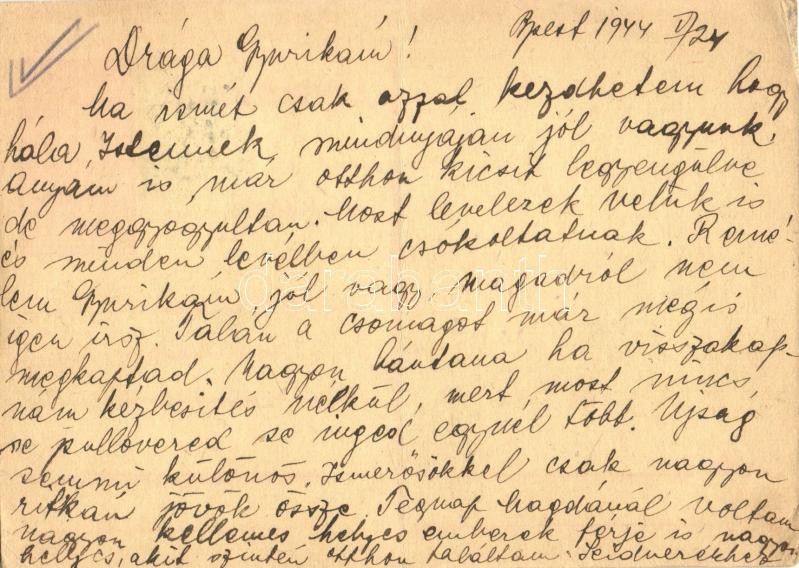 Bpest 1944 V/24
Drága Gyurikám!
Ma ismét csak azzal kezdhetem hogy
hála Istennek mindnyáján jól vagyunk,
anyám is már otthon kicsit legyengülve
de meggyogyultan. Most levelezek velük is
és minden levélben csókoltatnak. Remé-
lem Gyurikám jól vagy, magadról nem
igen irsz. Talán a csomagot már mégis
megkaptad. Nagyon bántana ha visszakap-
nám kézbesités nélkül, mert most nincs
se pullovered se inged egynél több. Ujság
semmi külonos. Ismerősökkel csak nagyon
ritkán jövök össze. Tegnap Magdánál voltam
nagyon kellemes helyes emberek férje is nagyon
helyes, akit szintén otthon találtam.
darabanth